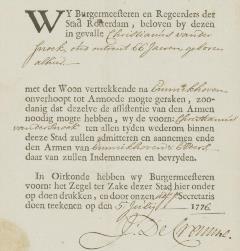 WY Burgermeesteren en Regeerders der
Stad Rotterdam, beloven by dezen
in gevalle Christianus vander
oud omtrent 26 Jaeren geboren
alhier
met der Woon vertrekkende na
onverhoopt tot Armoede mogte geraken, zoo-
danig dat dezelve de assistentie van den Armen
noodig mogte hebben, wy de voorn: Christianus
ten allen tyden wederom binnen
deeze Stad zullen admitteren en aannemen ende
den Armen van
daar van zullen Indemneeren en bevryden.
In Oirkonde hebben wy Burgermeesteren
voorn: het Zegel ter Zake dezer Stad hier onder
op doen drukken, en door onzen Secretaris
doen teekenen op den 5 July 1776